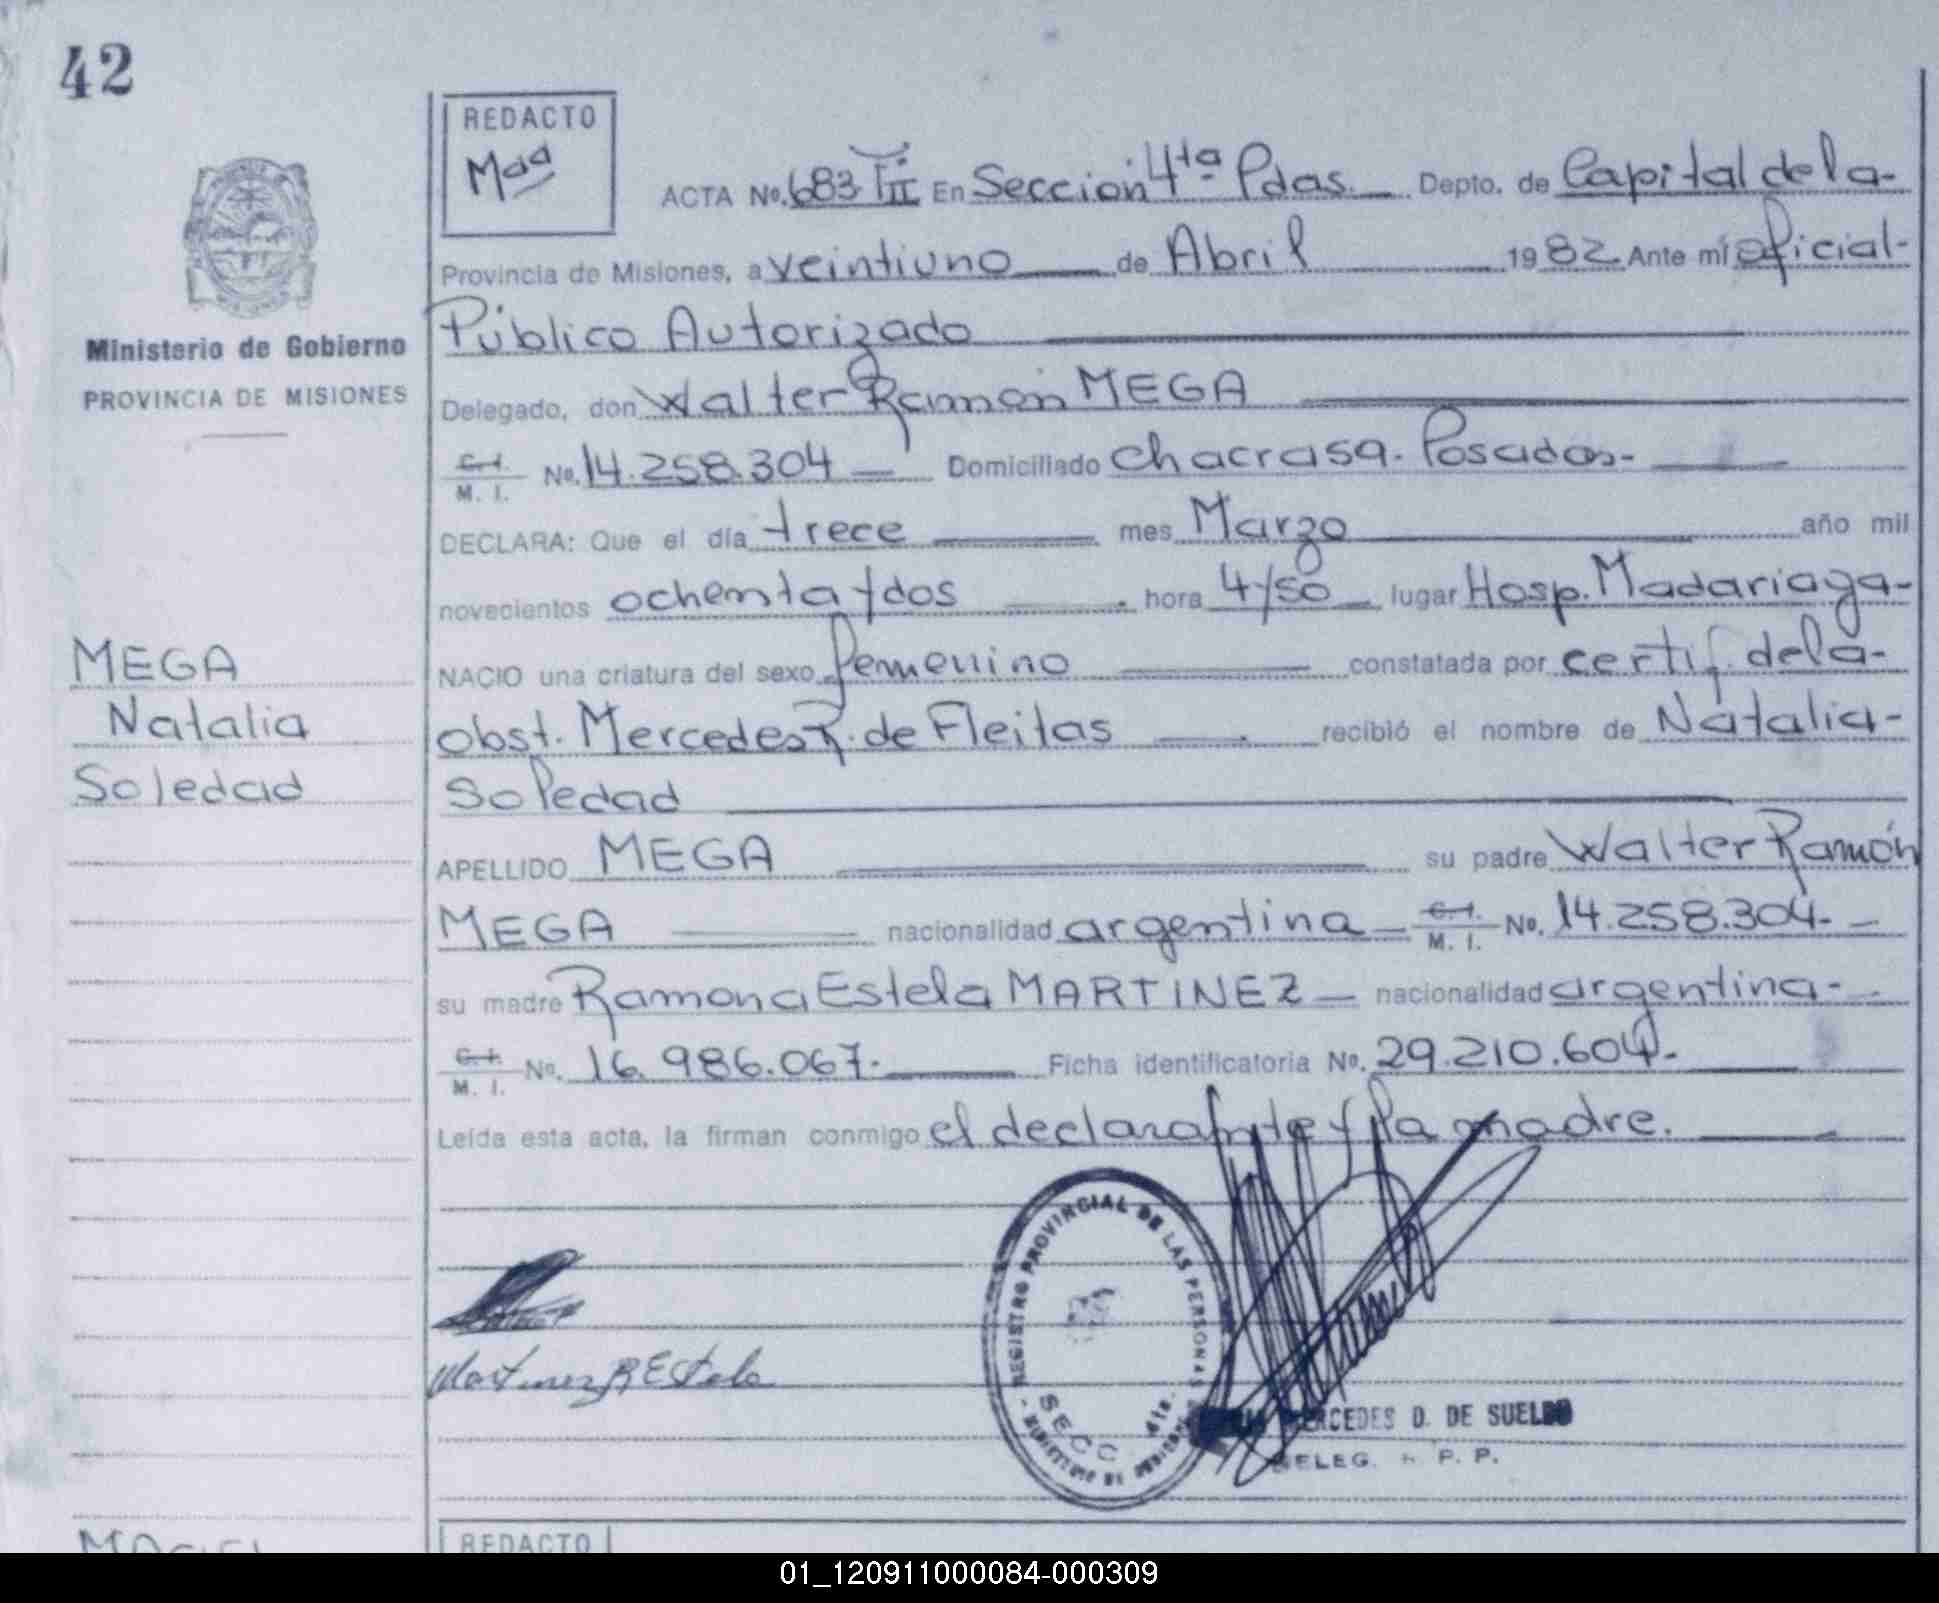 42
REDACTO
Mdd
ACTA No. 683 TIII En Seccion 4ta Pdas. Depto. de Capital de la-
Provincia de Misiones, a veintiuno de Abril 1982 Ante mí oficial-
Público Autorizado
Ministerio de Gobierno
PROVINCIA DE MISIONES
Delegado, don Walter Ramón MEGA
C. I. / M. I. No. 14.258.304 Domiciliado chacra 59. Posadas-
DECLARA: Que el día trece mes Marzo año mil
novecientos ochenta y dos hora 4/50 lugar Hosp. Madariaga-
MEGA
Natalia
Soledad
NACIO una criatura del sexo femenino constatada por certif. de la-
obst. Mercedes R. de Fleitas recibió el nombre de Natalia-
Soledad
APELLIDO MEGA su padre Walter Ramón
MEGA nacionalidad argentina C. I. / M. I. No. 14.258.304.-
su madre Ramona Estela MARTINEZ nacionalidad argentina-
C. I. / M. I. No. 16.986.067. Ficha identificatoria No. 29.210.604.-
Leída esta acta, la firman conmigo el declarante y la madre.
Martinez R Estela
REGISTRO PROVINCIAL DE LAS PERSONAS
SECC 4ta.
MERCEDES D. DE SUELDO
DELEG. R. P. P.
REDACTO
MACIEL
01_120911000084-000309